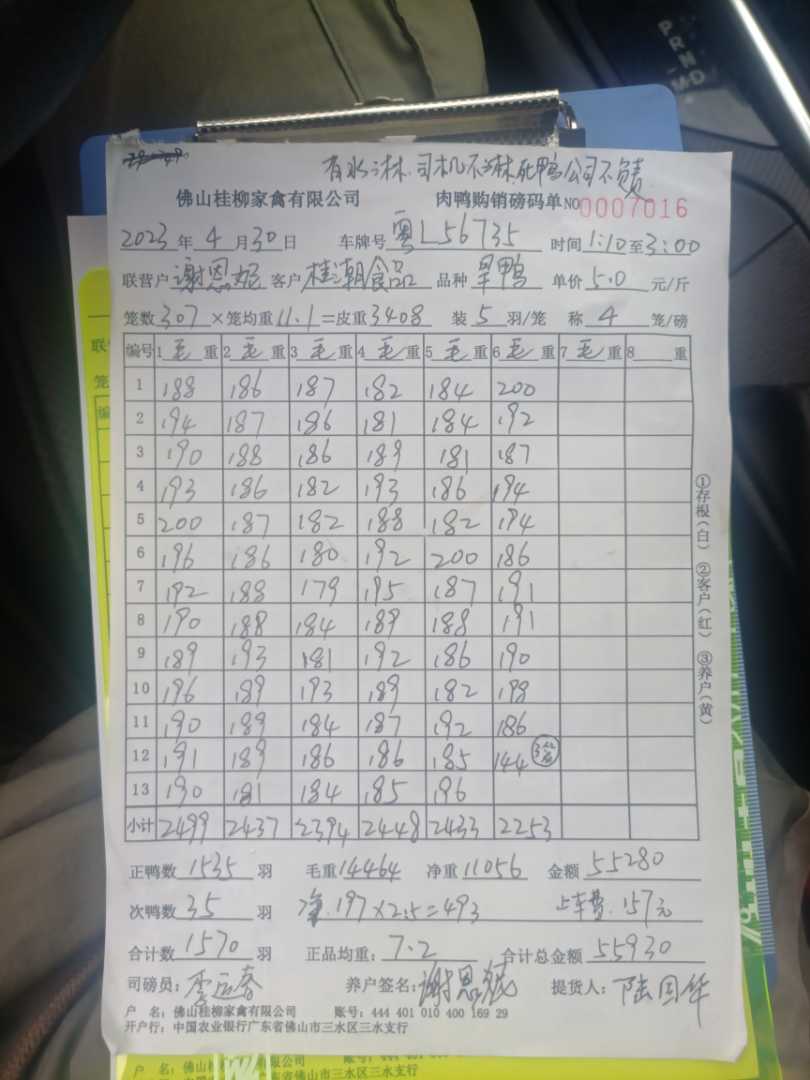 有水淋.司机不淋死鸭公司不负责
佛山桂柳家禽有限公司 肉鸭购销磅码单 NO 0007016
2023年4月30日 车牌号 粤L56735 时间 1:10至3:00
联营户 谢恩妮 客户 桂潮食品 品种 旱鸭 单价 5.0 元/斤
笼数 307 ×笼均重 11.1 =皮重 3408 装 5 羽/笼 称 4 笼/磅
编号 1毛重 2毛重 3毛重 4毛重 5毛重 6毛重 7毛重 8 重
1 188 186 187 182 184 200
2 194 187 186 181 184 192
3 190 188 186 189 181 187
4 193 186 182 193 186 194
5 200 187 182 188 182 194
6 196 186 180 192 200 186
7 192 188 179 195 187 191
8 190 188 184 189 188 191
9 189 193 181 192 186 190
10 196 189 193 189 182 198
11 190 189 184 187 192 186
12 191 189 186 186 185 144 3笼
13 190 181 184 185 196
小计 2499 2437 2394 2448 2433 2253
①存根(白) ②客户(红) ③养户(黄)
正鸭数 1535 羽 毛重 14464 净重 11056 金额 55280
次鸭数 35 羽 净.197×2.5=493 上车费.157元
合计数 1570 羽 正品均重: 7.2 合计总金额 55930
司磅员: 李运春 养户签名: 谢恩妮 提货人: 陆国华
户 名: 佛山桂柳家禽有限公司 账号: 444 401 010 400 169 29
开户行: 中国农业银行广东省佛山市三水区三水支行
户 名: 佛山桂柳家禽有限公司
P
R
N
M D